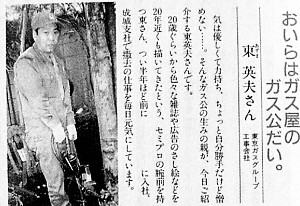 おいらはガス屋の
ガス公だい。
東 英夫さん
東京ガスグループ
工事会社
気は優しくて力持ち、ちょっと自分勝手だけど憎
めない……。そんなガス公の生みの親が、今日ご紹
介する東英夫さんです。
20歳ぐらいから色々な雑誌や広告のさし絵などを
20年近くも描いてきたという、セミプロの腕前を持
つ東さん。つい半年ほど前に に入社、
成城支社で撤去の仕事を毎日元気にしています。